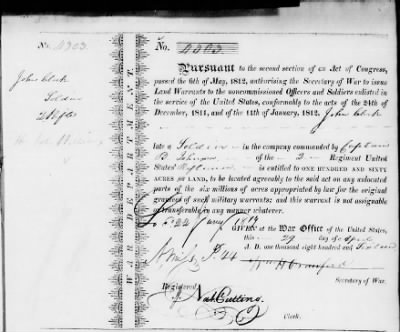 No. 4303.
John Clark
Soldier
2 Rifle
WAR DEPARTMENT
No. 4303
Pursuant to the second section of an Act of Congress,
passed the 6th of May, 1812, authorising the Secretary of War to issue
Land Warrants to the noncommissioned Officers and Soldiers enlisted in
the service of the United States, conformably to the acts of the 24th of
December, 1811, and of the 11th of January, 1812, John Clark
late a Soldier in the company commanded by Captain
B. Johnson of the 2 Regiment United
States' Riflemen is entitled to ONE HUNDRED AND SIXTY
ACRES OF LAND, to be located agreeably to the said act on any unlocated
part of the six millions of acres appropriated by law for the original
grantees of such military warrants; and this warrant is not assignable
or transferable in any manner whatever.
22
GIVEN at the War Office of the United States,
this 29 day of April
A. D. one thousand eight hundred and Sixteen
Wm H Crawford
Secretary of War.
Registered
Nat. Cutting,
Clerk.